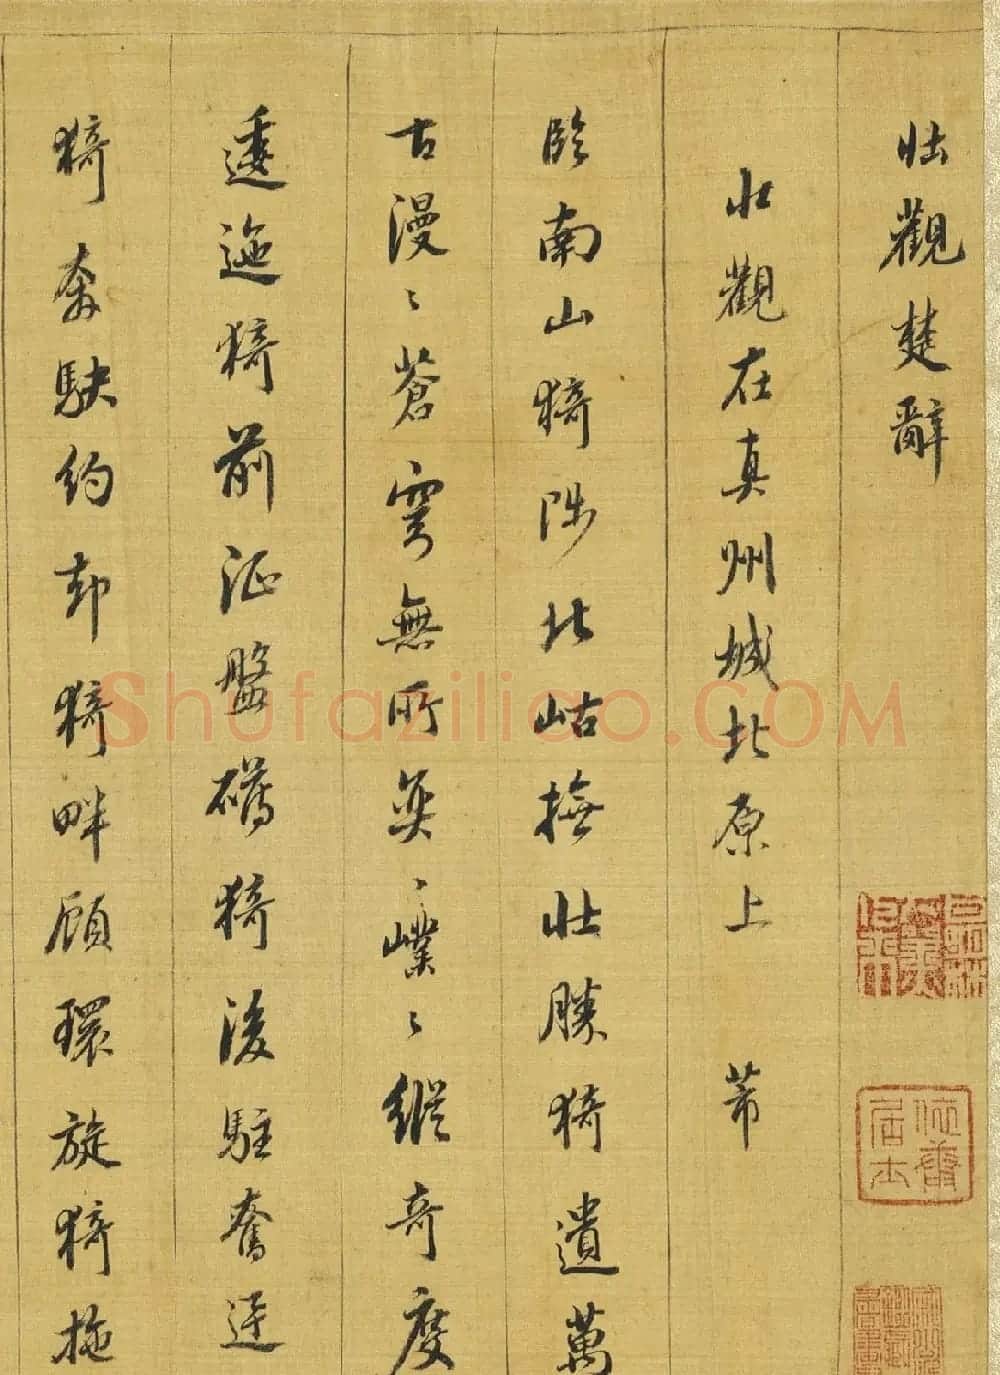 壯觀楚辭
壯觀在真州城北原上 芾
臨南山猗陟北岵撫壯勝猗遺萬
古漫〻蒼穹無所奭〻嶫〻縱奇度
逶迤猗前征盤礴猗後駐奮迅
猗奔駃約却猗畔顧環旋猗拖
居士
Shufaziliao.COM